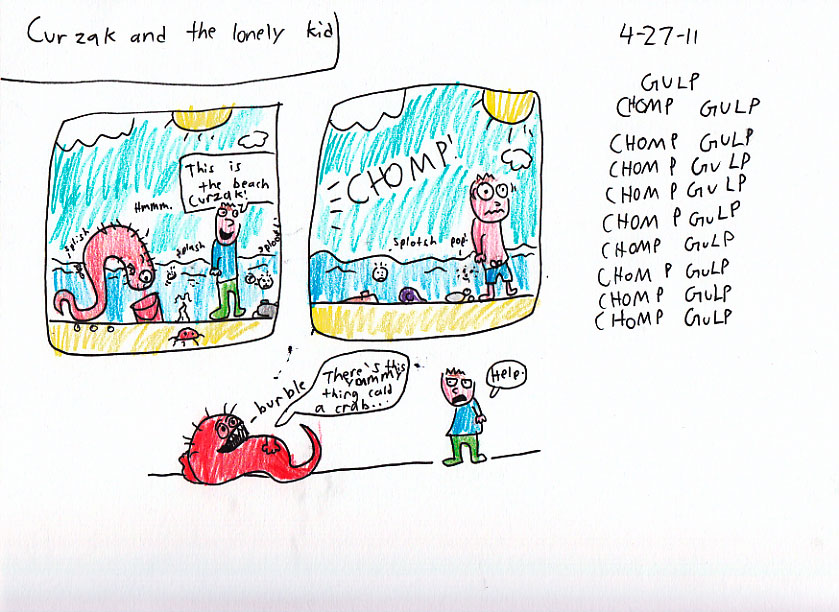 Curzak and the lonely kid
4-27-11
GULP
CHOMP GULP
CHOMP GULP
CHOMP GULP
CHOMP GULP
CHOMP GULP
CHOMP GULP
CHOMP GULP
CHOMP GULP
CHOMP GULP
This is
the beach
Curzak!
Hmmm.
splish
splash
sploosh
CHOMP!
splotch
pop.
burble
There's this
yammy
thing cald
a crab...
Help.